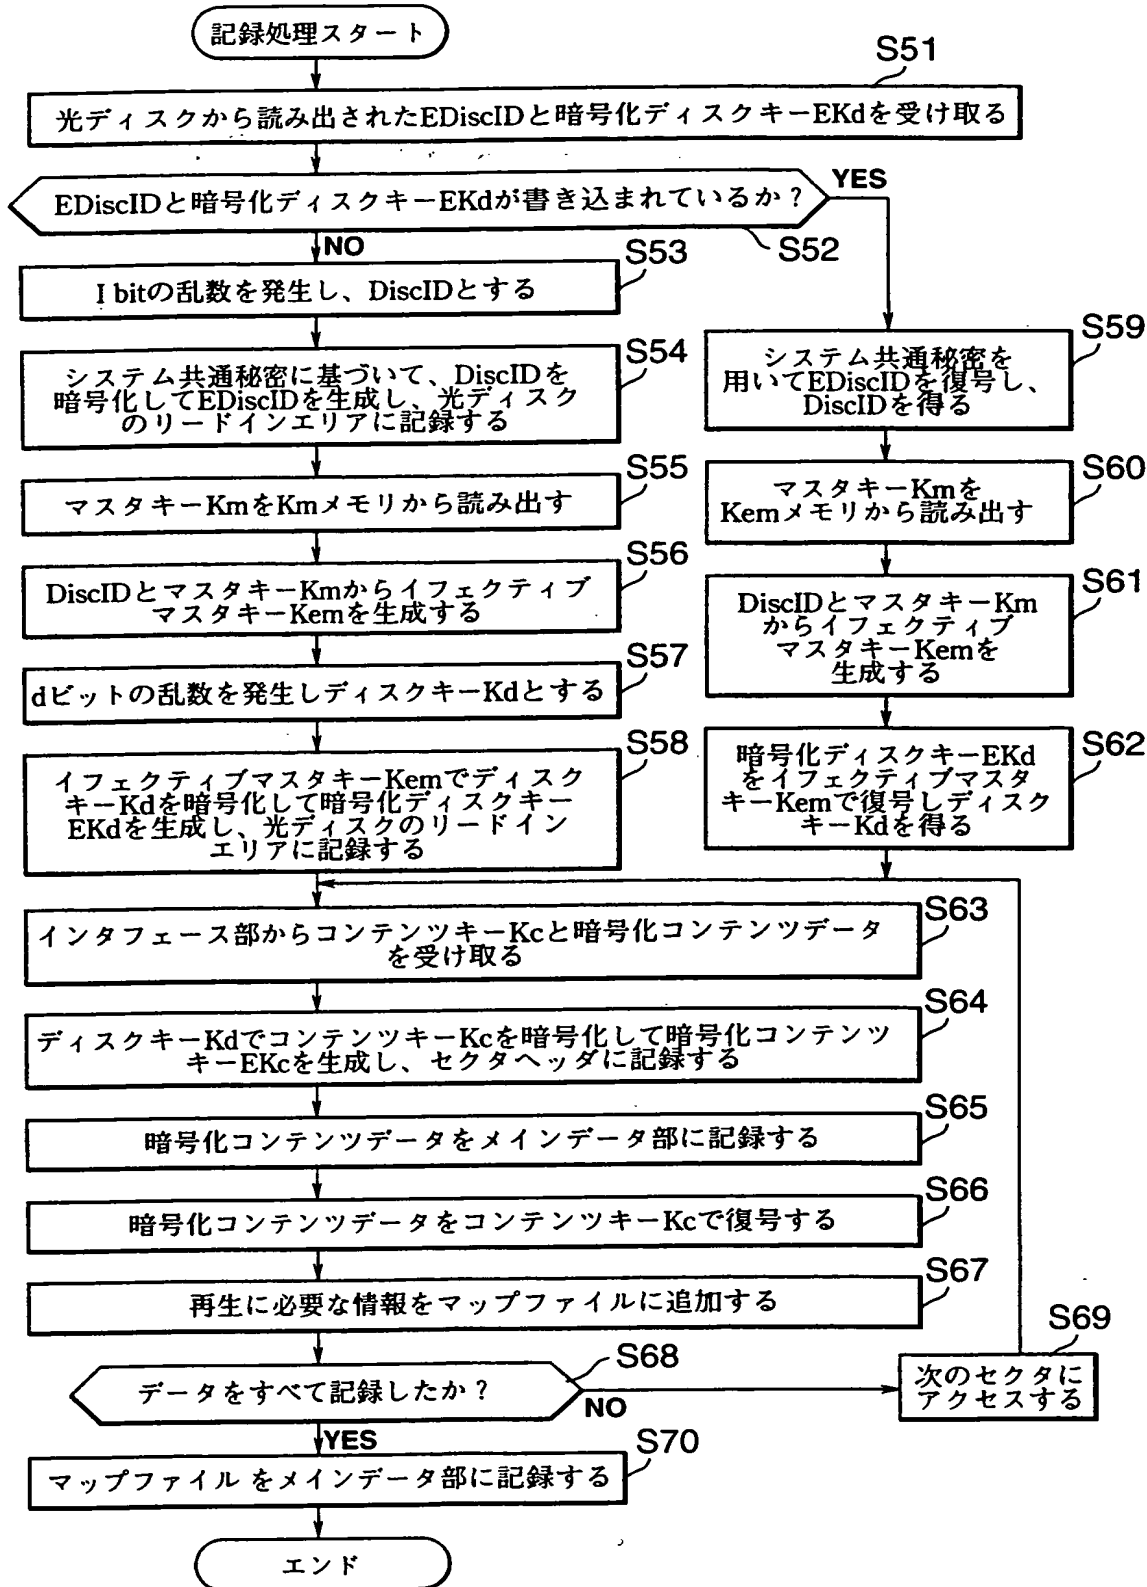 記録処理スタート
S51
光ディスクから読み出されたEDiscIDと暗号化ディスクキーEKdを受け取る
EDiscIDと暗号化ディスクキーEKdが書き込まれているか?
YES
S52
NO
S53
I bitの乱数を発生し、DiscIDとする
S54
システム共通秘密に基づいて、DiscIDを
暗号化してEDiscIDを生成し、光ディスク
のリードインエリアに記録する
S55
マスタキーKmをKmメモリから読み出す
S56
DiscIDとマスタキーKmからイフェクティブ
マスタキーKemを生成する
S57
dビットの乱数を発生しディスクキーKdとする
S58
イフェクティブマスタキーKemでディスク
キーKdを暗号化して暗号化ディスクキー
EKdを生成し、光ディスクのリードイン
エリアに記録する
S59
システム共通秘密を
用いてEDiscIDを復号し、
DiscIDを得る
S60
マスタキーKmを
Kemメモリから読み出す
S61
DiscIDとマスタキーKm
からイフェクティブ
マスタキーKemを
生成する
S62
暗号化ディスクキーEKd
をイフェクティブマスタ
キーKemで復号しディスク
キーKdを得る
S63
インタフェース部からコンテンツキーKcと暗号化コンテンツデータ
を受け取る
S64
ディスクキーKdでコンテンツキーKcを暗号化して暗号化コンテンツ
キーEKcを生成し、セクタヘッダに記録する
S65
暗号化コンテンツデータをメインデータ部に記録する
S66
暗号化コンテンツデータをコンテンツキーKcで復号する
S67
再生に必要な情報をマップファイルに追加する
S68
データをすべて記録したか?
NO
S69
次のセクタに
アクセスする
YES
S70
マップファイル をメインデータ部に記録する
エンド